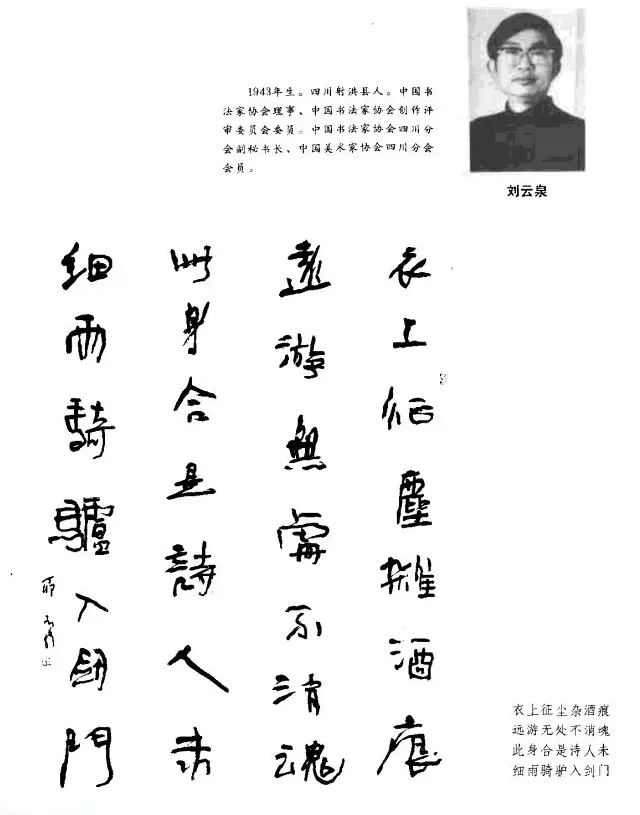 1943年生。四川射洪县人。中国书
法家协会理事、中国书法家协会创作评
审委员会委员。中国书法家协会四川分
会副秘书长、中国美术家协会四川分会
会员。
刘云泉
衣上征塵雜酒痕
遠游無處不消魂
此身合是詩人未
細雨騎驢入劍門
衣上征尘杂酒痕
远游无处不消魂
此身合是诗人未
细雨骑驴入剑门